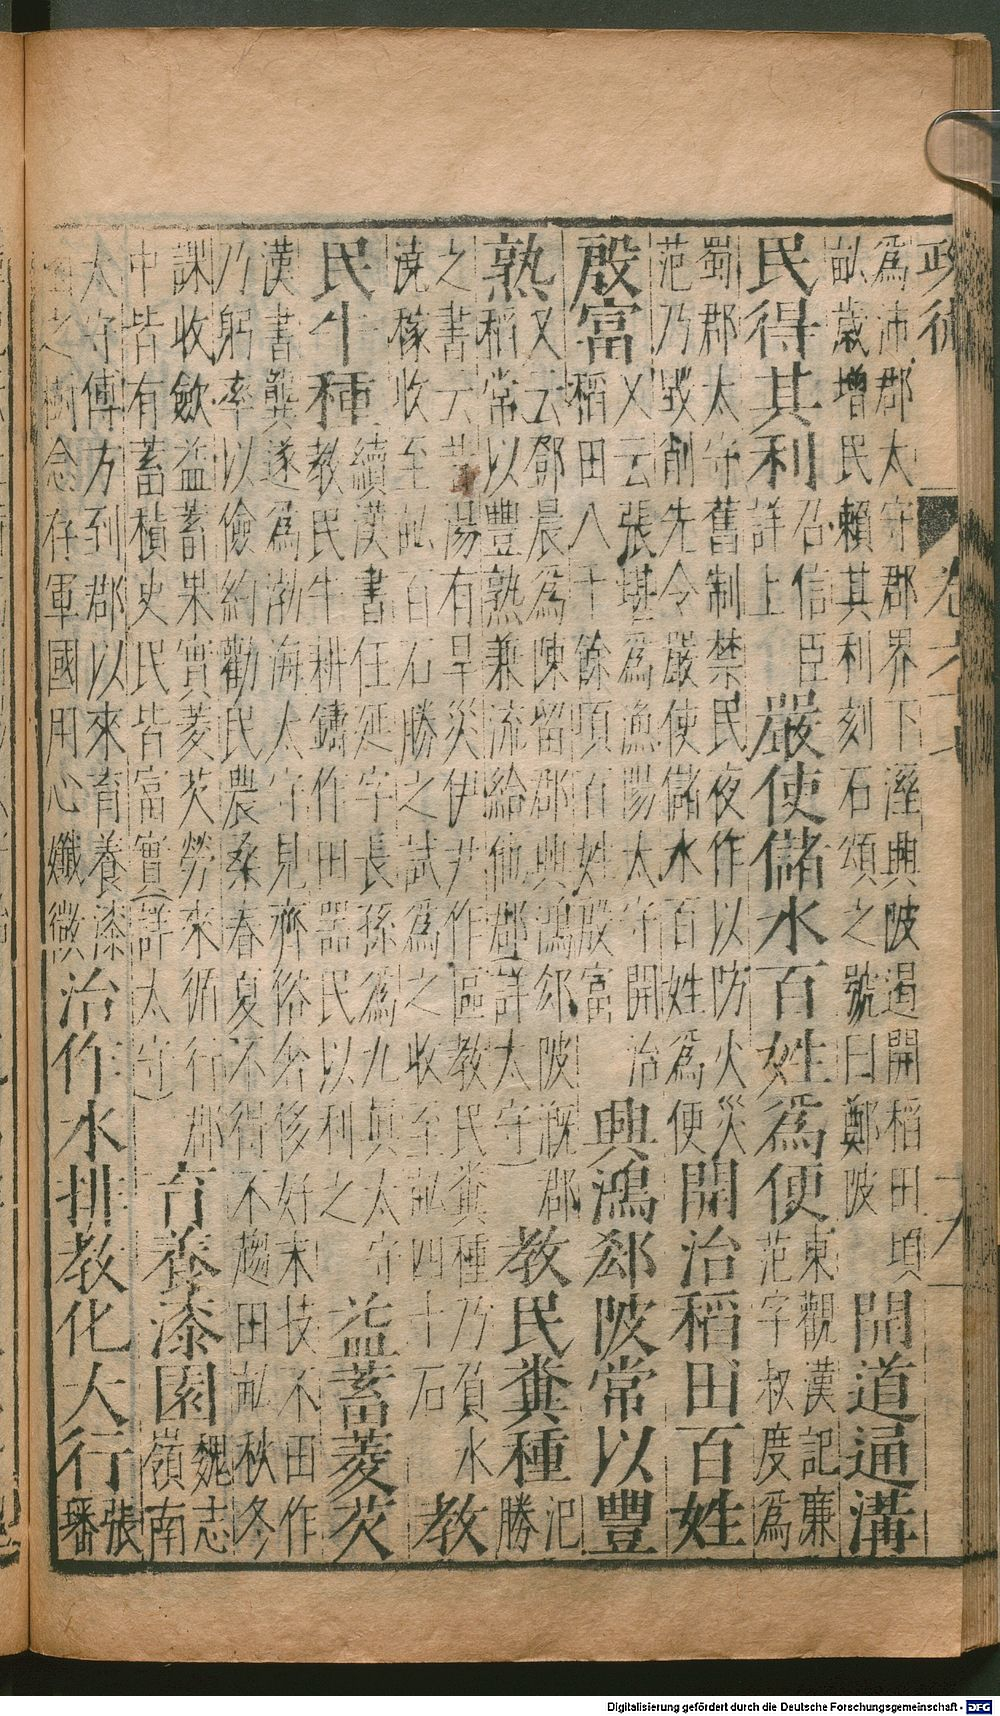 政術
爲沛郡太守郡界下溼興陂遏開稻田頃
畝歲增民賴其利刻石頌之號曰鄭陂
開道通溝
民得其利
召信臣
詳上
嚴使儲水百姓爲便
東觀漢記廉
范字叔度爲
蜀郡太守舊制禁民夜作以防火災
范乃毀削先令嚴使儲水百姓爲便
開治稻田百姓
殷富
又云張堪爲漁陽太守開治
稻田八千餘頃百姓殷富
興鴻郤陂常以豐
熟
又云鄧晨爲陳留郡興鴻郤陂溉郡
稻常以豐熟兼流給他郡(詳太守)
教民糞種
氾
勝
之書云昔湯有旱災伊尹作區教民糞種乃負水
澆稼收至畝百石勝之試爲之收至畝四十石
教
民牛種
續漢書任延字長孫爲九真太守
教民牛耕鑄作田器民以利之
益蓄菱芡
漢書龔遂爲渤海太守見齊俗奢侈好末技不田作
乃躬率以儉約勸民農桑春夏不得不趨田畝秋冬
課收斂益蓄果實菱芡勞來循行郡
中皆有蓄積史民皆富實(詳太守)
育養漆園
魏志
嶺南
太守傅方列郡以來育養漆
之樹念存軍國用心孅微
治作水排教化大行
張
璠
Digitalisierung gefördert durch die Deutsche Forschungsgemeinschaft - DFG